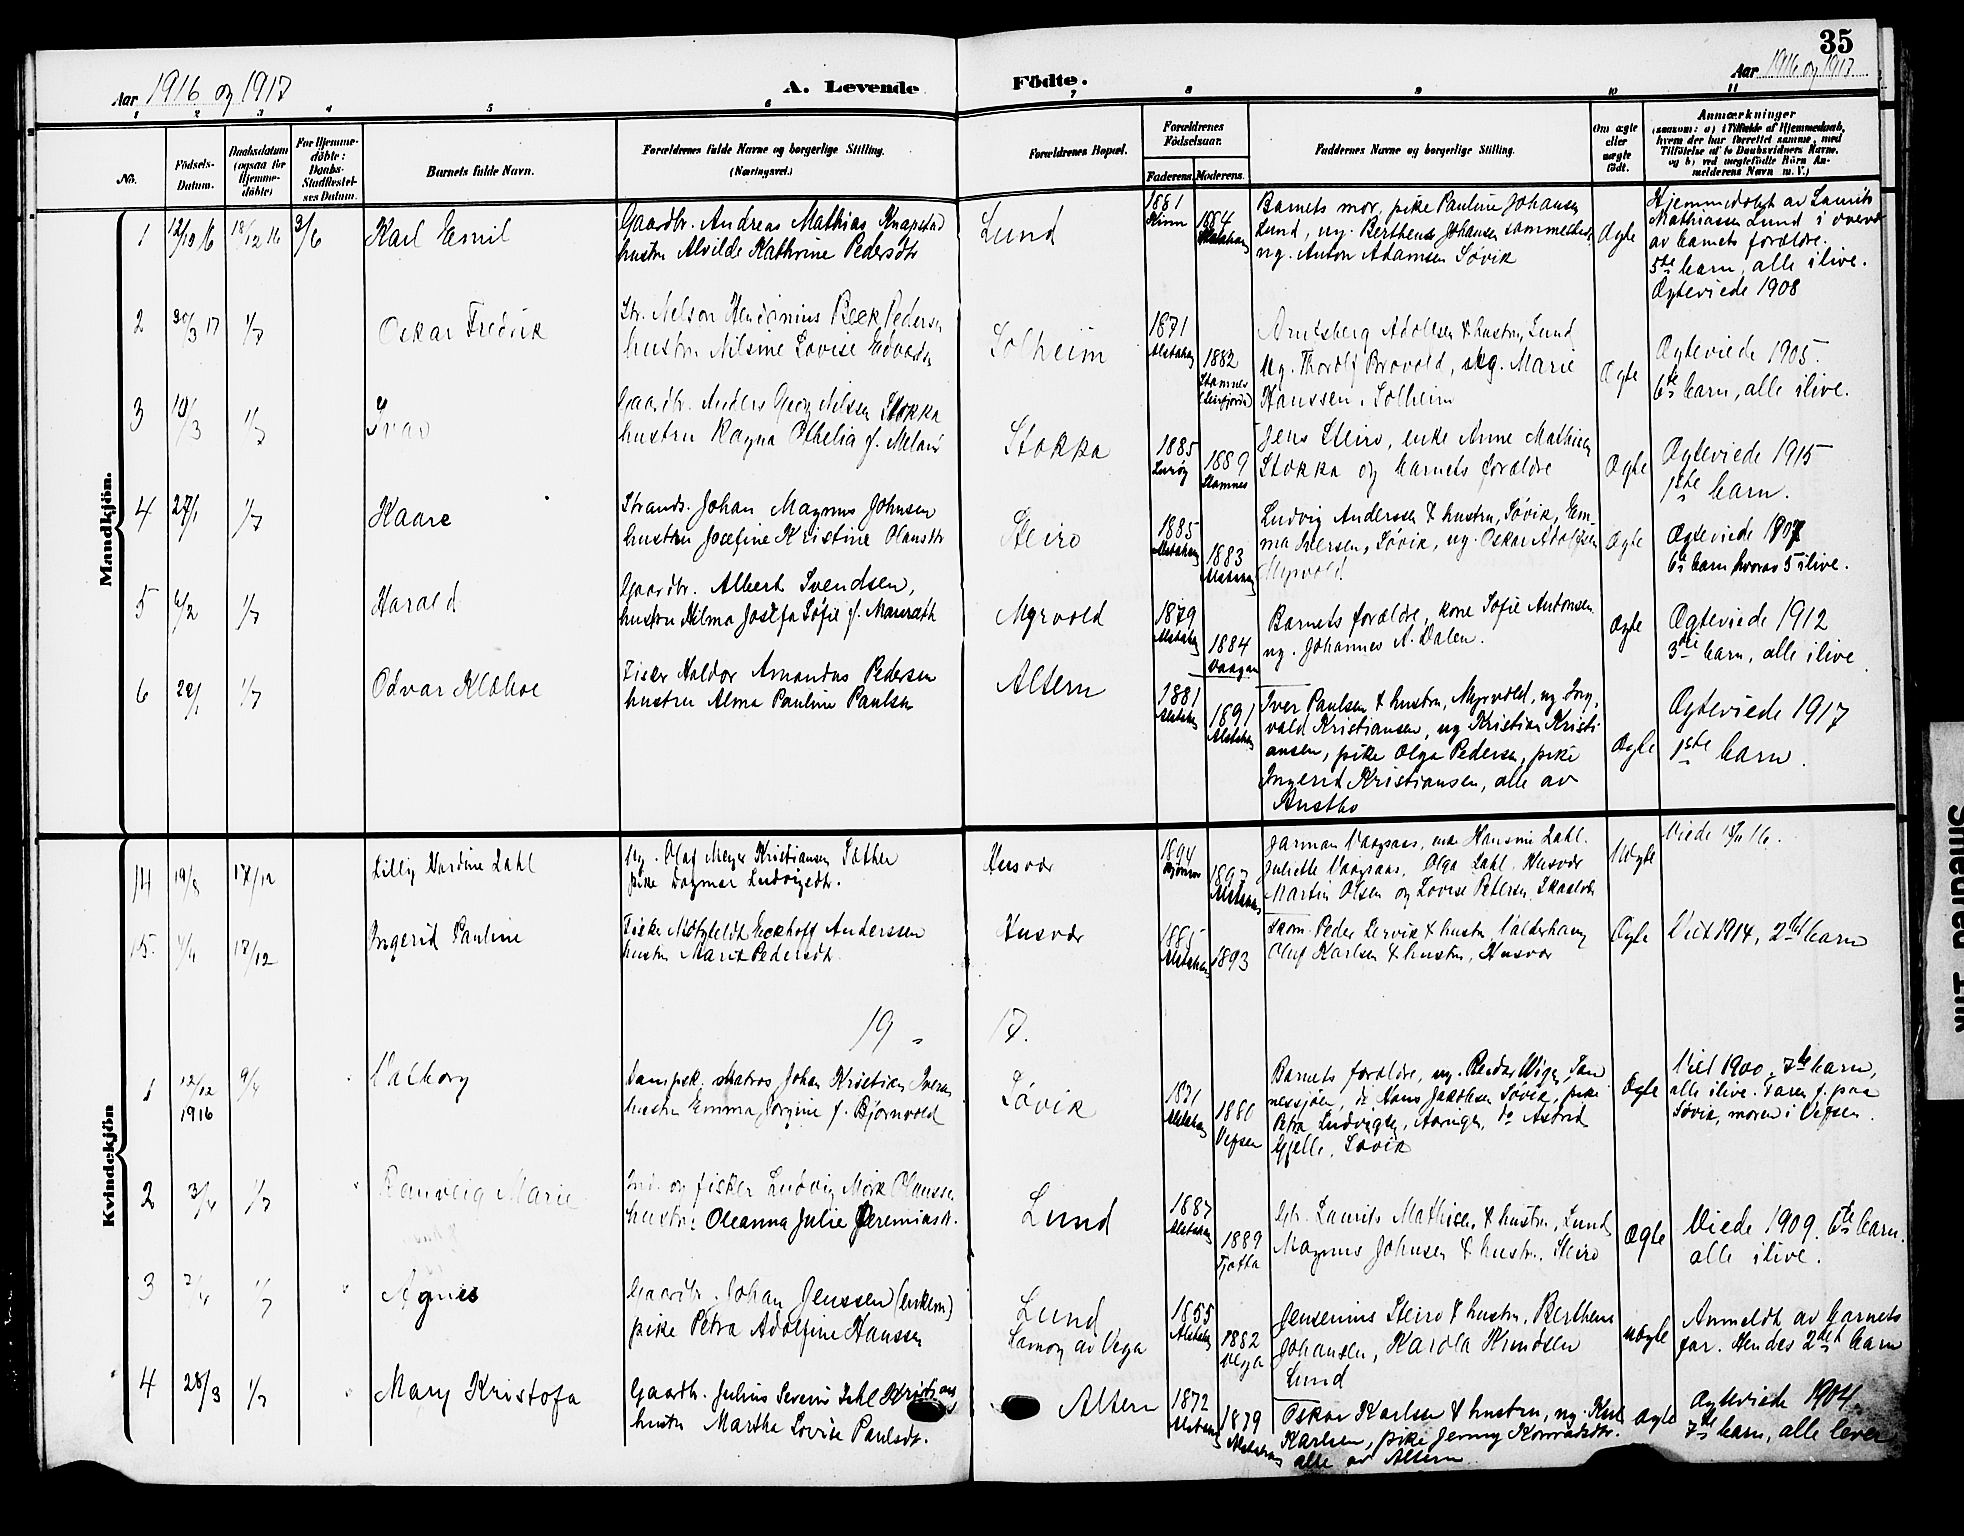 35
Aar 1916 og 1917
A. Levende Födte.
Aar 1916 og 1917
1 2 3 4 5 6 7 8 9 10 11
No.
Födsels-
Datum.
Daabsdatum
(ogsaa for
Hjemme-
döbte)
For Hjemme-
döbte:
Daabs-
Stadfæstel-
ses Datum.
Barnets fulde Navn.
Forældrenes fulde Navne og borgerlige Stilling.
(Næringsvei.)
Forældrenes Bopæl.
Forældrenes
Födselsaar.
Faderens. Moderens.
Faddernes Navne og borgerlige Stilling.
Om ægte
eller
uægte
födt.
Anmærkninger
(saasom: a) i Tilfælde af Hjemmedaab,
hvem der har forrettet samme, med
Tilföielse af to Daabsvidners Navne,
og b) ved uægtefödte Börn An-
melderens Navn m. V.)
Mandkjön.
1 12/10 16 18/12 16 3/6 Karl Emil
Gaardbr. Andreas Mathias Knapstad
hustru Alvilde Kathrine Pedersdtr
Lund
1881
Kinn
1884
Alstahaug
Barnets mor, pike Pauline Johansen
Lund, ug. Bertheus Johansen sammesteds,
ug. Anton Adamsen Søvik
Ægte
Hjemmedøbt av Laurits
Mathiassen Lund i overv.
av barnets forældre.
5te barn, alle ilive.
Ægteviede 1908
2 30/3 17 1/7 Oskar Fredrik
Str. Nelson Hendinius Beck Pedersen
hustru Nilsine Lovise Edvardsd.
Solheim
1871
Alstahaug
1882
Stamnes
(Leirfjorden)
Arntsberg Adolfsen & hustru, Lund
Ug. Thorolf Brovold, ug. Marie
Hanssen, Solheim
Ægte
Ægteviede 1905.
6te barn, alle ilive.
3 10/3 1/7 Ivar
Gaardbr. Anders Georg Nilsen Stokka
hustru Ragna Othelia f. Meland
Stokka
1885
Lurøy
1889
Stamnes
Jens Steiro, enke Anne Mathisen
Stokka og barnets forældre
Ægte
Ægteviede 1915
1ste barn.
4 27/1 1/7 Kaare
Strands. Johan Magnus Johnsen
hustru Josefine Kristine Olausdtr
Steiro
1885
Alstahaug
1883
Alstahaug
Ludvig Anderssen & hustru, Søvik, Em-
ma Iversen, Søvik, ug. Oskar Adolfsen
Myrvold.
Ægte
Ægteviede 1907
6te barn hvorav 5 ilive.
5 6/2 1/7 Harald
Gaardbr. Albert Svendsen,
hustru Hilma Josefa Sofie f. Maurseth
Myrvold
1879
Alstahaug
1884
Vaagan
Barnets forældre, kone Sofie Antonsen
ug. Johannes A. Dalen.
Ægte
Ægteviede 1912
3die barn, alle ilive
6 22/1 1/7 Odvar Klæboe
Fisker Haldor Amandus Pedersen
hustru Alma Pauline Paulsen
Altern
1881
Alstahaug
1891
Alstahaug
Iver Paulsen & hustru, Myrvold, ug Ing-
vald Kristiansen, ug Kristian Kristi
ansen, pike Olga Pedersen, pike
Ingerid Kristiansen, alle av
Austbo
Ægte
Ægteviede 1917
1ste barn.
Kvindekjön
14 19/8 17/12 Lilly Hardine Dahl
Ug. Olaf Meyer Kristiansen Sæther
pike Dagmar Ludvigsdtr.
Husvær
1894
1897
Alstahaug
Jarman Vaagsaas, enke Hansine Dahl.
Juliette Vaagsaas, Olga Dahl, Husvær
Martin Olsen og Lovise Petersen
Uægte
Viede 18/11 16.
15. 4/4 17/12 Ingerid Pauline
Fisker Eckhoff Anderssen
hustru Marit Pedersdtr.
Husvær
1885
Alstahaug
1893
Skom. Peder Lervik & hustru
Oluf Karlsen & hustru, Husvær
Ægte
Viet 1914, 2det barn
19 17.
1 12/12 1916 9/4 Valborg
Dampsk. matros Johan Kristian Iversen
hustru Emma Jorgine f. Bjørnvold
Søvik
1871
Alstahaug
1880
Vefsen
Barnets forældre, ug. Reidar Wigen, San
nessjøen, do Hans Jakobsen Søvik, pike
Petra Ludvigsen, do Astrid
Gjelle, Søvik
Ægte
Viet 1900, 7de barn,
alle ilive. Faren f. paa
Søvik, moren i Vefsen.
2 3/4 1/7 Ranveig Marie
Ind. og fisker Ludvig Mørk Olaussen
hustru: Oleanna Julie Jeremiasd.
Lund
1887
Alstahaug
1889
Tjøtta
Gbr. Laurits Mathisen & hustru, Lund
Magnus Johnsen & hustru, Steiro
Ægte
Viede 1909. 6te barn.
alle ilive.
3 2/4 1/7 Agnes
Gaardbr. Johan Jenssen (enkem)
pike Petra Adolfine Hanssen
Lund
Samøy av Vega
1855
Alstahaug
1882
Vega
Jensenius Steiro & hustru, Bertheus
Johansen, Karola Knudsen
Lund
Uægte
Anmeldt av barnets
far. Hendes 2det barn
4 28/3 1/7 Mary Kristofa
Gaardbr. Julius Severin
hustru Martha Lovise Paulsdtr.
Altern
1872
Alstahaug
1879
Alstahaug
Oskar Karlsen & hustru, ug. Karl
Karlsen, pike Jenny Konradsdtr.
alle av Altern
Ægte
Ægteviede 1904.
7de barn, alle lever